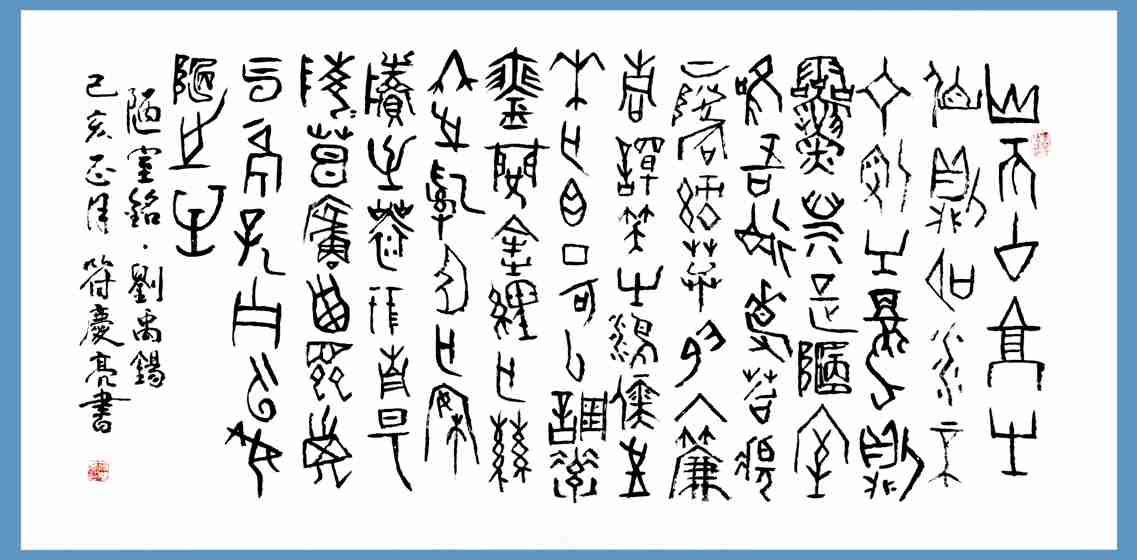 山不在高有
仙則名水不
在深有龍則
靈斯是陋室
唯吾德馨苔痕
上階綠草色入簾
青談笑有鴻儒往
來無白丁可以調素
琴閱金經無絲
竹之亂耳無案
牘之勞形南陽
諸葛廬西蜀子
雲亭孔子云何
陋之有
陋室銘·劉禹錫
己亥正月符慶亮書